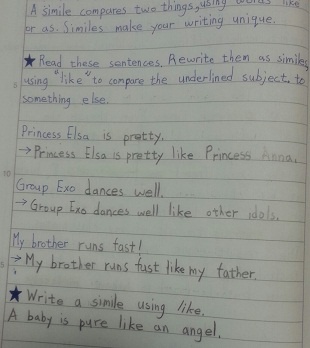 A simile compares two things, using words like
or as. Similes make your writing unique.
★ Read these sentences. Rewrite them as similes,
using "like" to compare the underlined subject to
something else.
Princess Elsa is pretty.
→ Princess Elsa is pretty like Princess Anna.
Group Exo dances well.
→ Group Exo dances well like other idols.
My brother runs fast!
→ My brother runs fast like my father.
★ Write a simile using like.
A baby is pure like an angel.